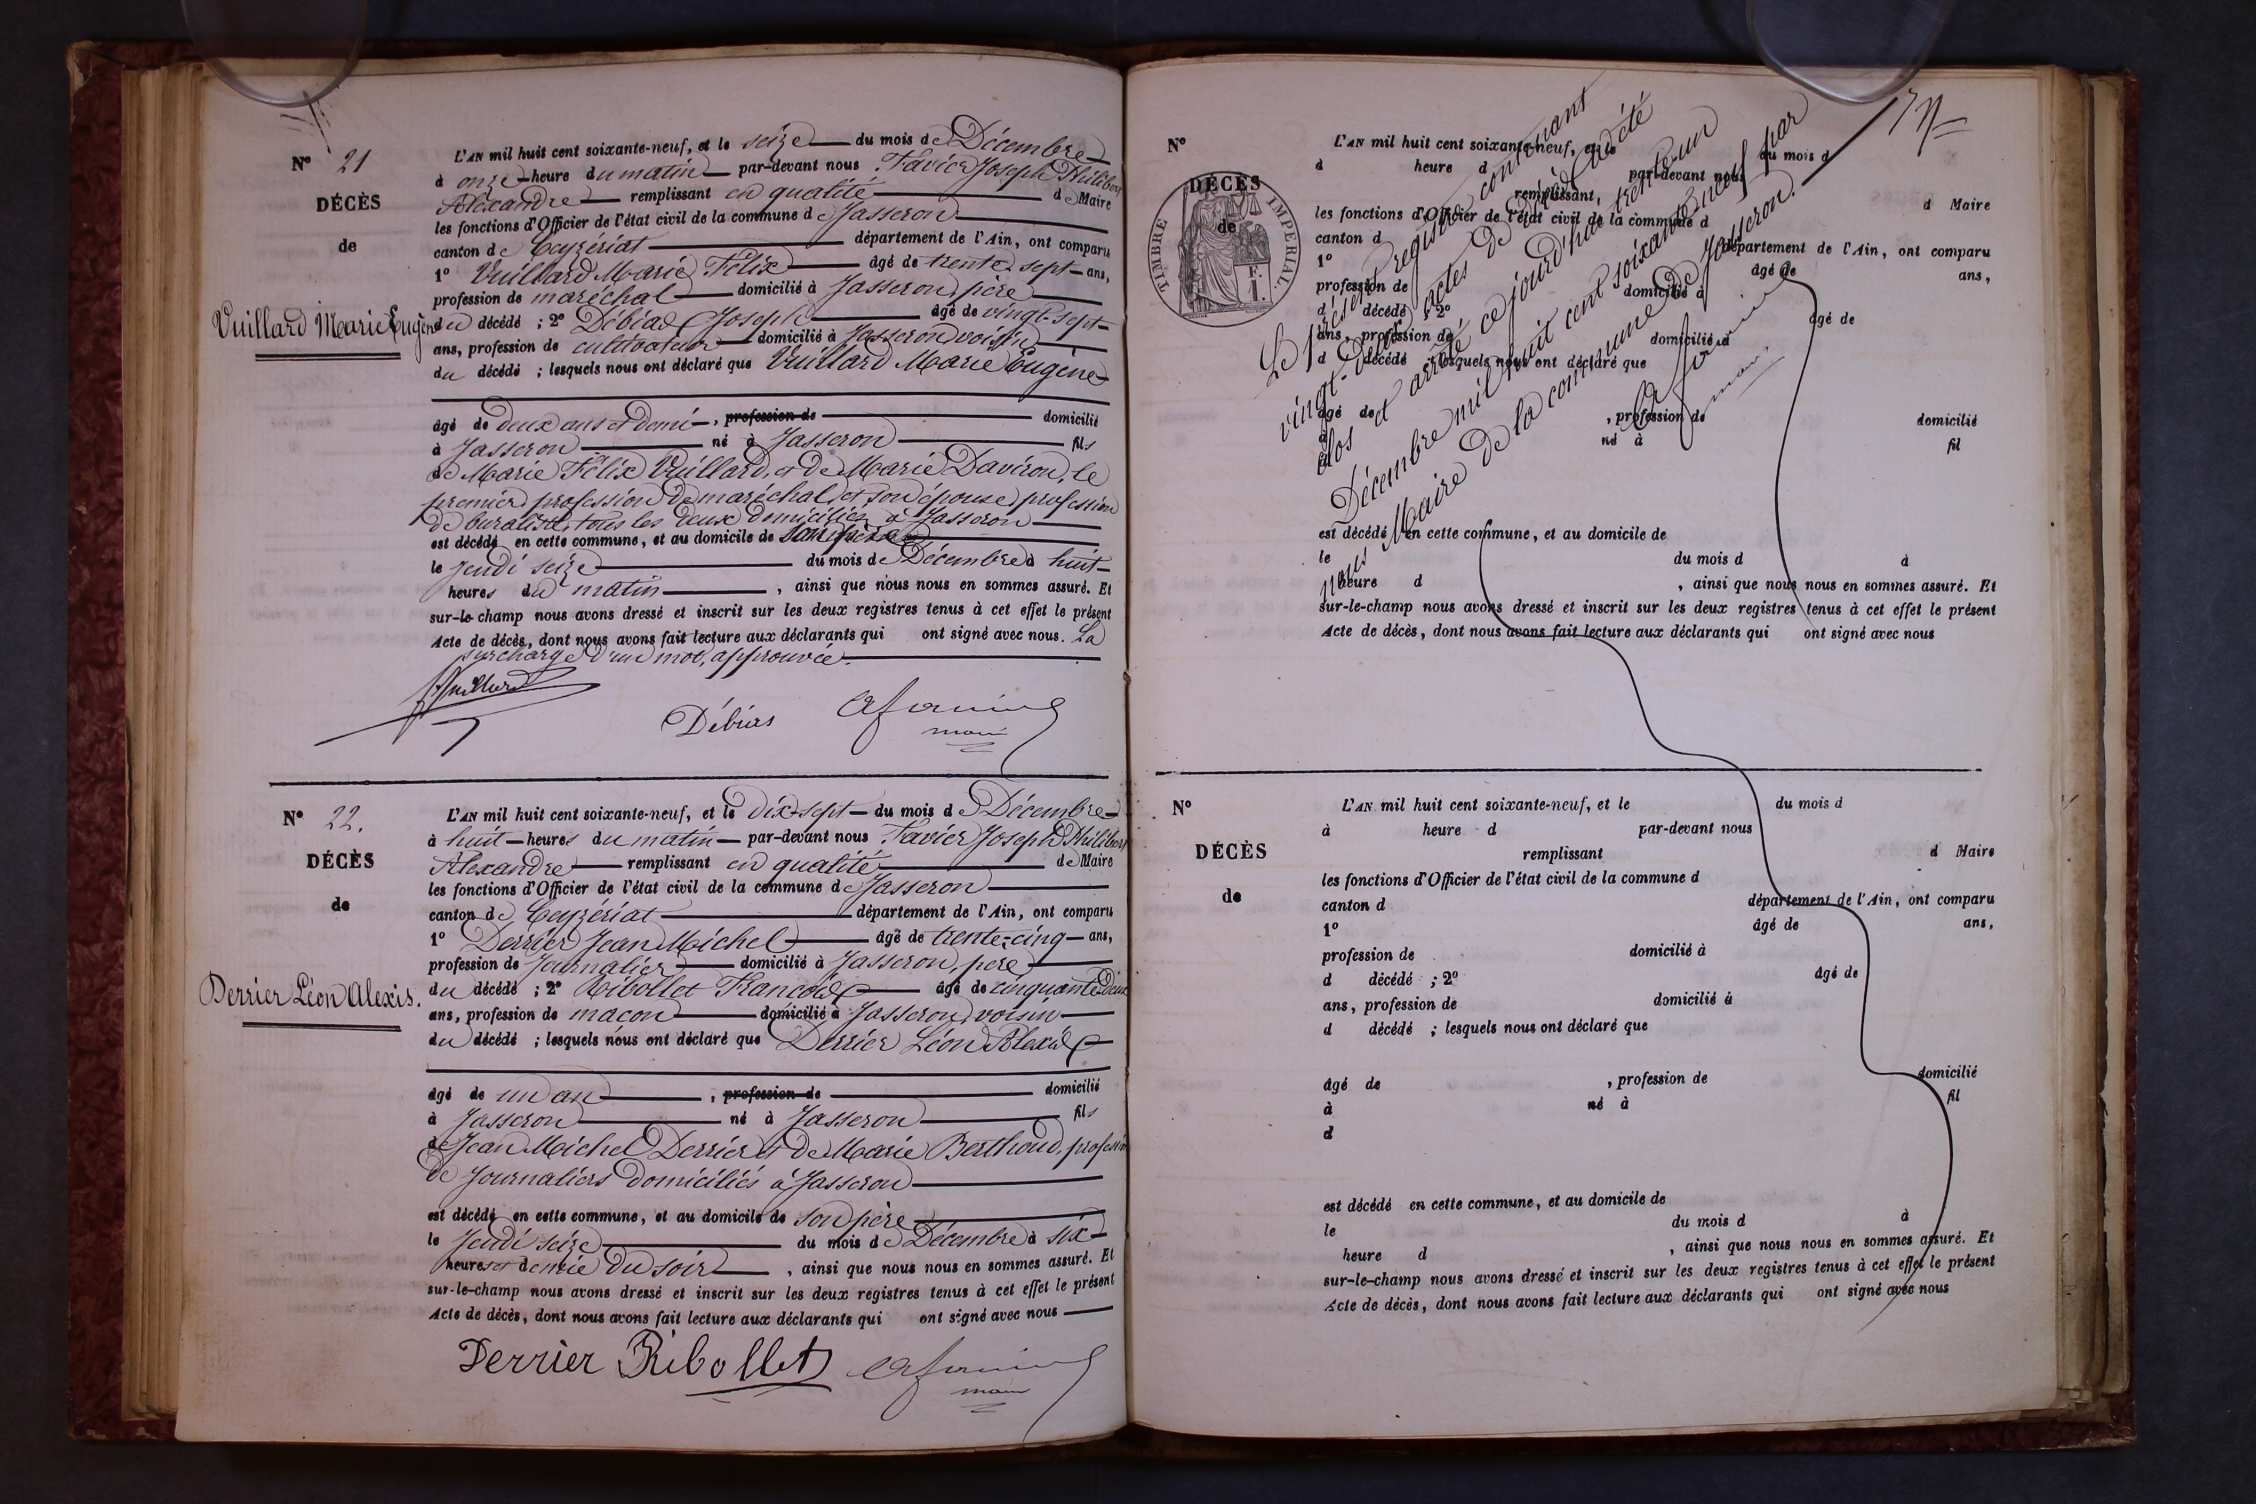 N° 21
DÉCÈS
de
Vuillard Marie Eugène
L'AN mil huit cent soixante-neuf, et le seize du mois de Décembre
à onze heure du matin par-devant nous Favier Joseph Philibert
Alexandre remplissant en qualité de Maire
les fonctions d'Officier de l'état civil de la commune de Jasseron
canton de Ceyzériat département de l'Ain, ont comparu
1° Vuillard Marie Félix âgé de trente sept ans,
profession de maréchal domicilié à Jasseron, père
du décédé ; 2° Débias Joseph âgé de vingt-sept
ans, profession de cultivateur domicilié à Jasseron voisin
du décédé ; lesquels nous ont déclaré que Vuillard Marie Eugène
âgé de deux ans et demi, profession de domicilié
à Jasseron né à Jasseron fils
de Marie Félix Vuillard, et de Marie Daviron, le
premier profession de maréchal, et son épouse profession
de buraliste, tous les deux domiciliés à Jasseron
est décédé en cette commune, et au domicile de son père
le jeudi seize du mois de Décembre à huit
heures du matin, ainsi que nous nous en sommes assuré. Et
sur-le-champ nous avons dressé et inscrit sur les deux registres tenus à cet effet le présent
Acte de décès, dont nous avons fait lecture aux déclarants qui ont signé avec nous. La
surcharge d'un mot, approuvée.
Vuillard
Débias
maire
N° 22.
DÉCÈS
de
Derrier Léon Alexis.
L'AN mil huit cent soixante-neuf, et le dix-sept du mois de Décembre
à huit heures du matin par-devant nous Favier Joseph Philibert
Alexandre remplissant en qualité de Maire
les fonctions d'Officier de l'état civil de la commune de Jasseron
canton de Ceyzériat département de l'Ain, ont comparu
1° Derrier Jean Michel âgé de trente-cinq ans,
profession de Journalier domicilié à Jasseron, père
du décédé ; 2° Ribollet François âgé de cinquante-deux
ans, profession de maçon domicilié à Jasseron, voisin
du décédé ; lesquels nous ont déclaré que Derrier Léon Alexis
âgé de un an, profession de domicilié
à Jasseron né à Jasseron fils
de Jean Michel Derrier et de Marie Berthoud, profession
de Journaliers domiciliés à Jasseron
est décédé en cette commune, et au domicile de son père
le jeudi seize du mois de Décembre à six
heures et demie du soir, ainsi que nous nous en sommes assuré. Et
sur-le-champ nous avons dressé et inscrit sur les deux registres tenus à cet effet le présent
Acte de décès, dont nous avons fait lecture aux déclarants qui ont signé avec nous
Derrier Ribollet
maire
N°
DÉCÈS
de
TIMBRE IMPERIAL
L'AN mil huit cent soixante-neuf, et le du mois d
à heure d par-devant nous
remplissant, d Maire
les fonctions d'Officier de l'état civil de la commune d
canton d département de l'Ain, ont comparu
1° âgé de ans,
profession de domicilié à
d décédé ; 2° âgé de
ans, profession de domicilié à
d décédé ; lesquels nous ont déclaré que
âgé de , profession de domicilié
à né à fil
d
est décédé en cette commune, et au domicile de
le du mois d à
heure d , ainsi que nous nous en sommes assuré. Et
sur-le-champ nous avons dressé et inscrit sur les deux registres tenus à cet effet le présent
Acte de décès, dont nous avons fait lecture aux déclarants qui ont signé avec nous
Le présent registre contenant
vingt-deux actes de décès a été
clos et arrêté ce jourd'hui trente-un
Décembre mil huit cent soixante-neuf par
nous Maire de la commune de Jasseron.
maire
N°
DÉCÈS
de
L'AN mil huit cent soixante-neuf, et le du mois d
à heure d par-devant nous
remplissant d Maire
les fonctions d'Officier de l'état civil de la commune d
canton d département de l'Ain, ont comparu
1° âgé de ans,
profession de domicilié à
d décédé ; 2° âgé de
ans, profession de domicilié à
d décédé ; lesquels nous ont déclaré que
âgé de , profession de domicilié
à né à fil
d
est décédé en cette commune, et au domicile de
le du mois d à
heure d , ainsi que nous nous en sommes assuré. Et
sur-le-champ nous avons dressé et inscrit sur les deux registres tenus à cet effet le présent
Acte de décès, dont nous avons fait lecture aux déclarants qui ont signé avec nous